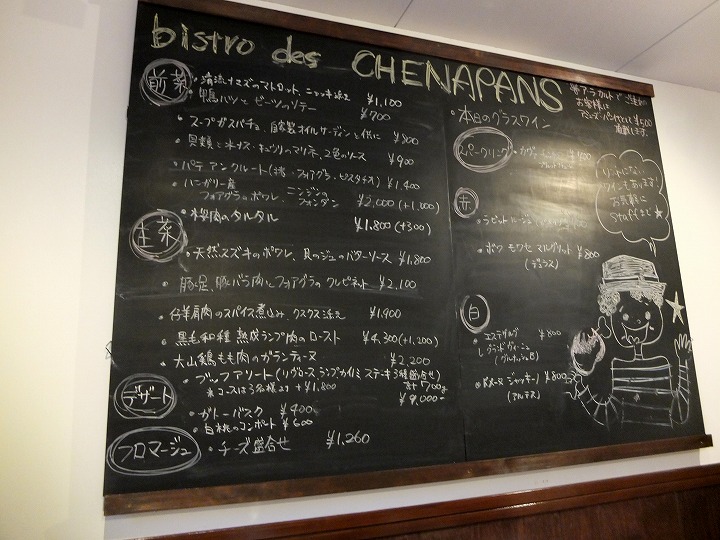 bistro des CHENAPANS
前菜
・清流ナミズのマトロット、ニョッキ添え ¥1,100
・鴨ハツとビーツのソテー ¥700
・スープガスパチョ、自家製オイルサーディンと供に ¥800
・貝類と水ナス・キュウリのマリネ、2色のソース ¥900
・パテアンクルート(フォアグラ・ピスタチオ) ¥1,400
・ハンガリー産
フォアグラのポワレ、ニンジンのフォンダン ¥2,000(+1,000)
・桜肉のタルタル ¥1,800(+300)
主菜
・天然スズキのポワレ、貝のジュのバターソース ¥1,800
・豚足、豚バラ肉とフォアグラのクレピネット ¥2,100
・仔羊肩肉のスパイス煮込み、クスクス添え ¥1,900
・黒毛和種 熟成ランプ肉のロースト ¥4,300(+1,200)
・大山鶏もも肉のガランティーヌ ¥2,200
・ブッフアリート(リブロース ランプ カイノミ ステーキ3種盛合せ)
※コースは3名様より +¥1,800 計700g
¥9,000-
デザート
・ガトーバスク ¥400
・白桃のコンポート ¥600
フロマージュ
・チーズ盛合せ ¥1,260
※アラカルトでご注文の
お客様に
アミューズ・パン代として¥500
頂戴します。
・本日のグラスワイン
スパークリング
・カヴァ
赤
・ラピットルージュ
・ボワ モワセ マルグリット ¥800
(デュラス)
白
・エステザルグ ¥800
グランドヴィーニュ
(グルナッシュB)
・ドメーヌ ジャッキーノ ¥800
(アルテス)
リストにない
ワインもあります!
お気軽に
Staffまで★